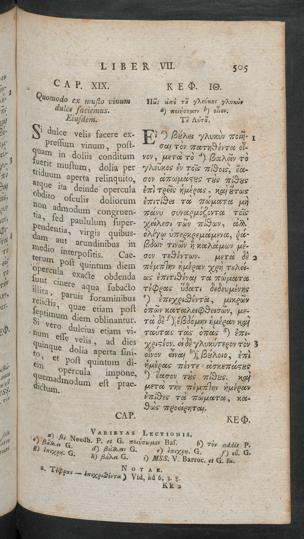 LIBER VII. 505
CAP. XIX.
Quomodo ex musto vinum
dulce faciemus.
Eiusdem.
Si dulce velis facere ex-
pressum vinum, post-
quam in doliis conditum
fuerit mustum, dolia per
triduum aperta relinquito,
atque ita deinde opercula
indito osculis doliorum
non admodum congruen-
tia, sed paululum super-
pendentia, virgis quibus-
dam aut arundinibus in
medio interpositis. Cae-
terum post quintum diem
opercula exacte obdenda
sunt cinere aqua subacto
illita, parvis foraminibus
relictis, quae etiam post
septimum diem oblinantur.
Si vero dulcius etiam vi-
num esse velis, ad dies
quinque dolia aperta sini-
to, et post quintum di-
em opercula impone,
quemadmodum est prae-
dictum.
CAP.
ΚΕΦ. ΙΘ.
Πῶς ἀπὸ τοῦ γλεύκους γλυκὺν
Τοῦ Αὐτοῦ.
Εἰ βούλει γλυκὺν ποιῆ-
σαι τὸν πατηθέντα οἶ-
νον, μετὰ τὸ βαλεῖν τὸ
γλεῦκος ἐν τοῖς πίθοις, ἔα-
σον ἀπωμάστους τὸν πίθους
ἐπὶ τρεῖς ἡμέρας, καὶ οὕτως
ἐπιτίθει τὰ πώματα μὴ
πάνυ συναρμόζοντα τοῖς
χείλεσι τῶν πίθων, ἀλλ'
ὀλίγῳ ὑπερκρεμάμενα, ῥά-
βδων τινῶν ἢ καλάμων μέ-
σον τεθέντων. μετὰ δὲ 2
πέμπτην ἡμέραν χρὴ τελεί-
ως ἐπιτιθέναι τὰ πώματα
τέφρας ὕδατι δεδευμένης
ἐπιχρισθέντα, μικρῶν
ὀπῶν καταλειφθεισῶν, με-
τὰ δὲ ἑβδόμην ἡμέραν καὶ
ταύτας τὰς ὀπὰς ἐπι-
χριστέον. εἰ δὲ γλυκύτερον τὸν 3
οἶνον εἶναι βούλοιο, ἐπὶ
ἡμέρας πέντε ἀσκεπάστους
ἔασον τοὺς πίθους. καὶ
μετὰ τὴν πέμπτην ἡμέραν
ἐπιτίθει τὰ πώματα, κα-
θὼς προείρηται.
ΚΕΦ.
VARIETAS LECTIONIS.
NOTAE.
2. Τέφρας — ἐπιχρισθέντα) Vid. ad 6, 3. 5.
Kk 2